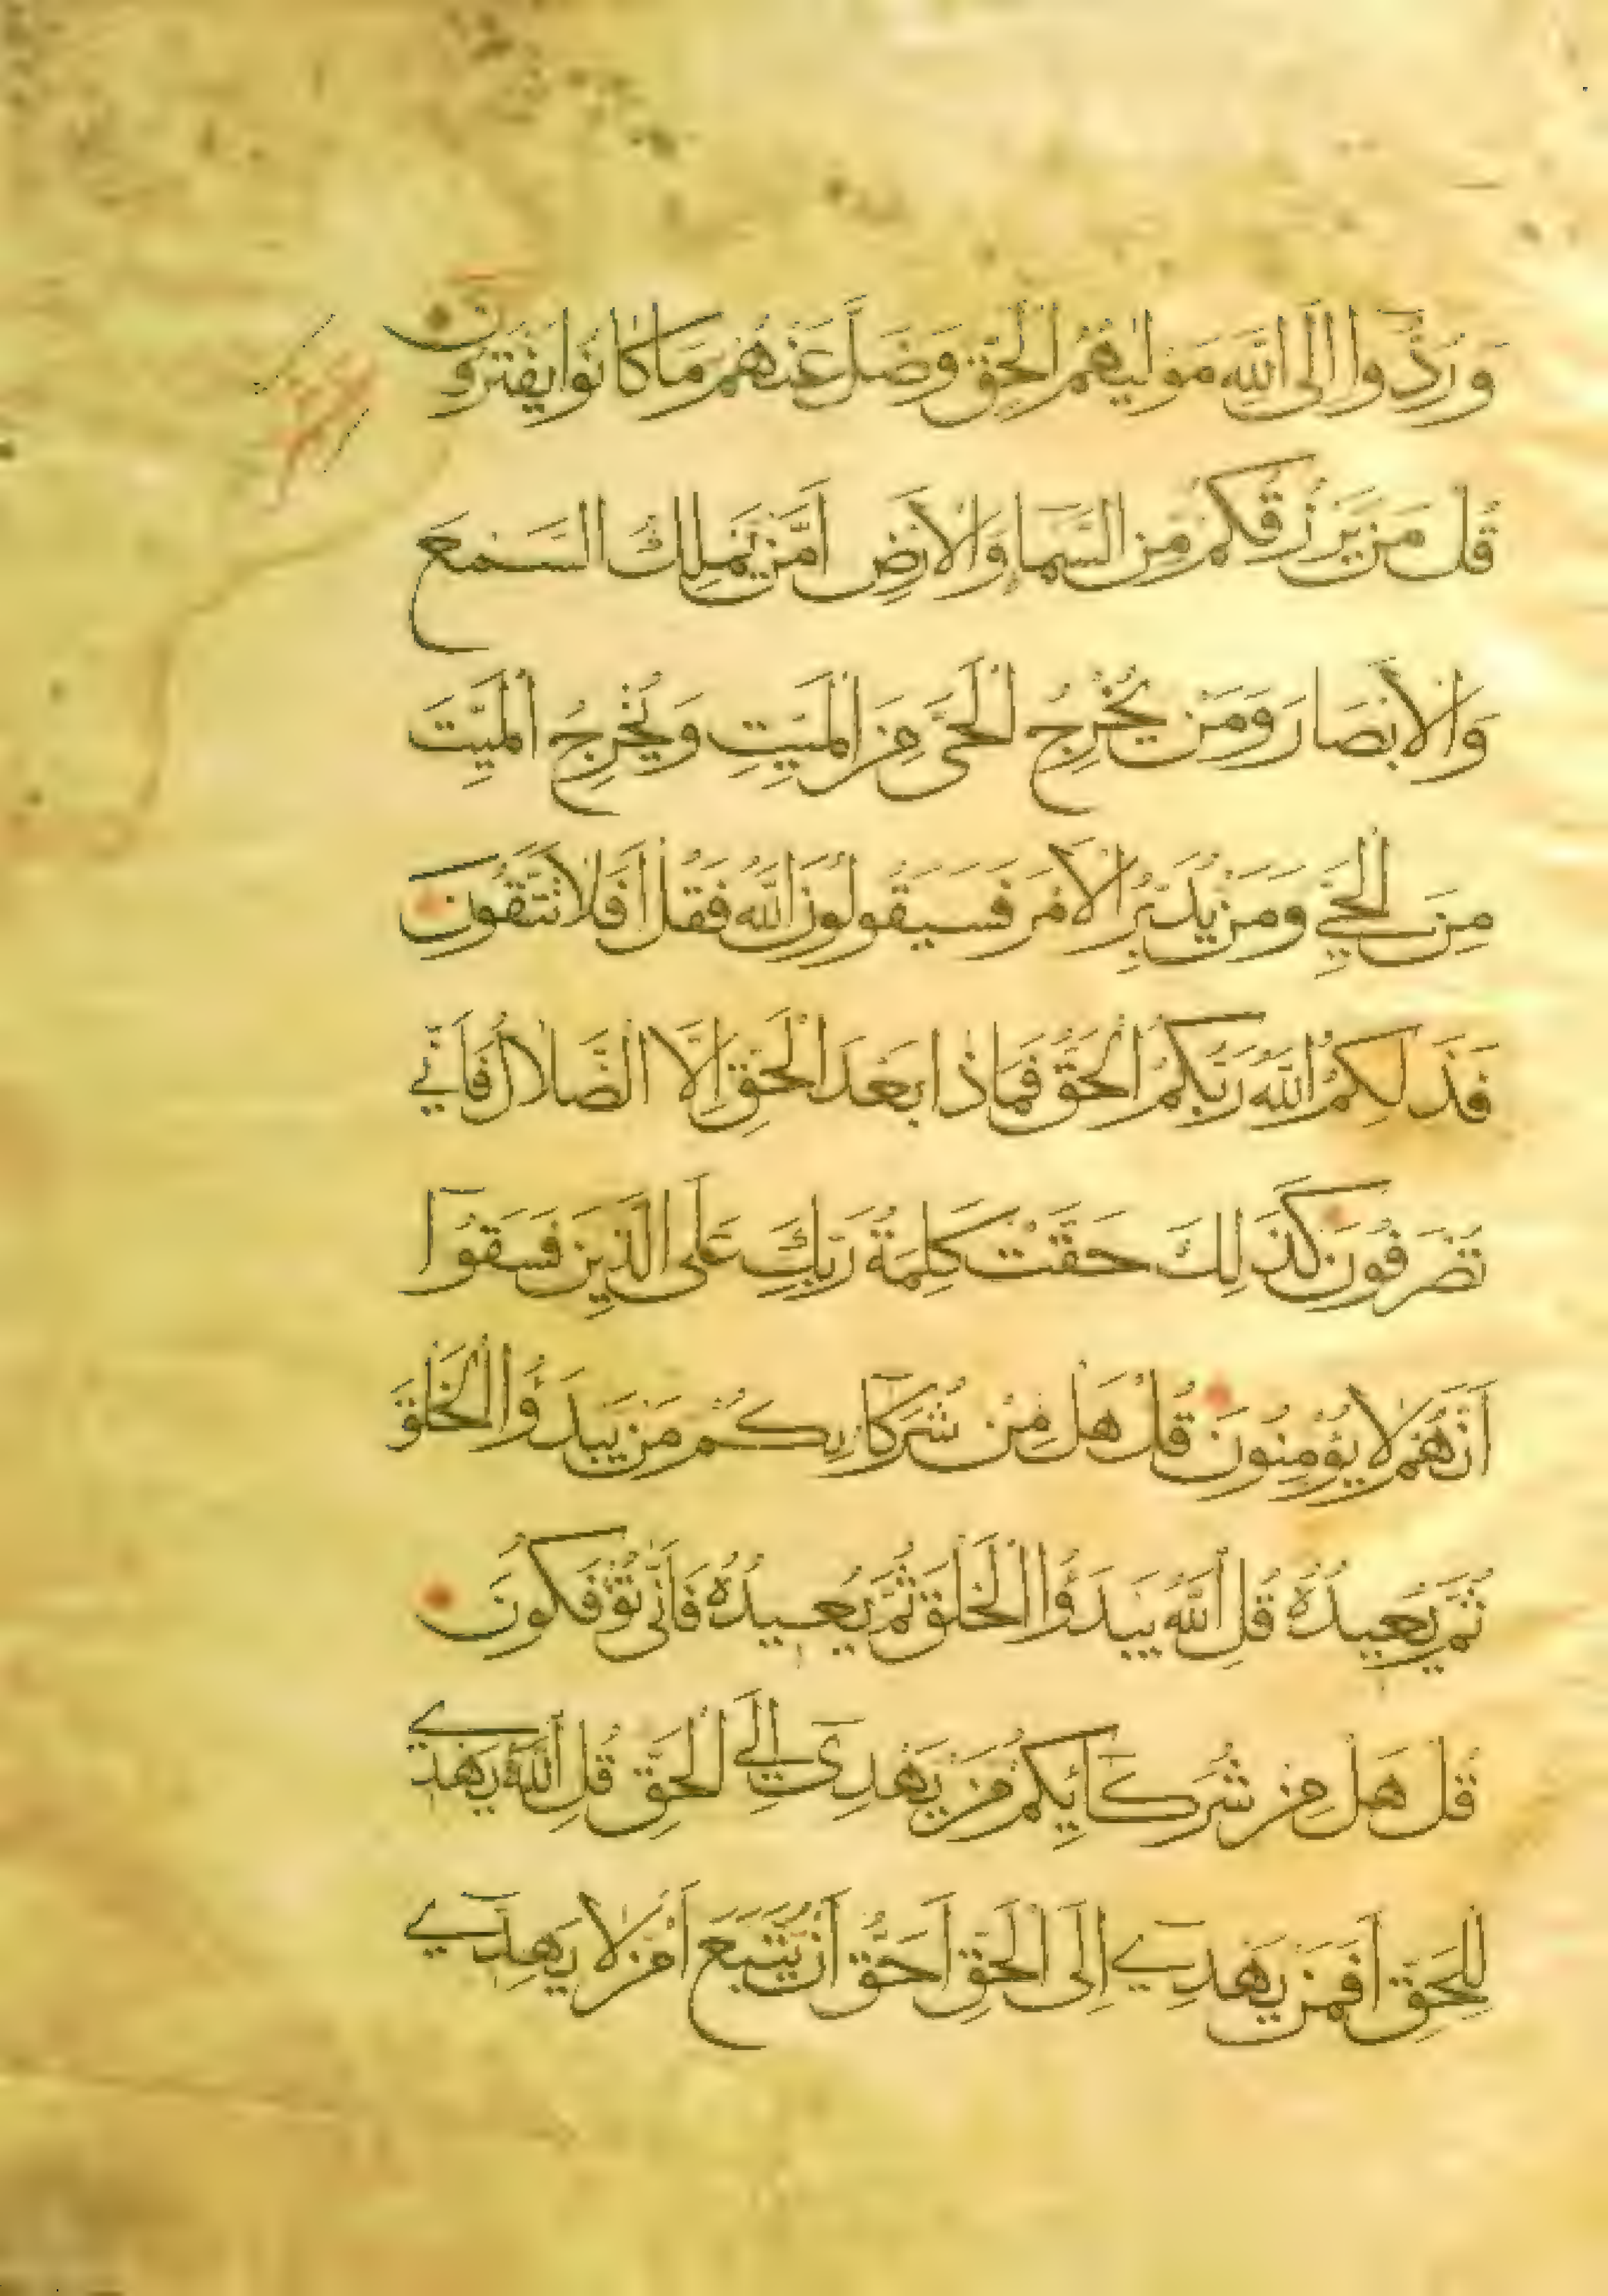 وَرُدُّوا اِلَى اللَّهِ مَوْلٰيهُمُ الْحَقِّ وَضَلَّ عَنْهُمْ مَا كَانُوا يَفْتَرُونَ
قُلْ مَنْ يَرْزُقُكُمْ مِنَ السَّمَاءِ وَالْاَرْضِ اَمَّنْ يَمْلِكُ السَّمْعَ
وَالْاَبْصَارَ وَمَنْ يُخْرِجُ الْحَىَّ مِنَ الْمَيِّتِ وَيُخْرِجُ الْمَيِّتَ
مِنَ الْحَيِّ وَمَنْ يُدَبِّرُ الْاَمْرَ فَسَيَقُولُونَ اللَّهُ فَقُلْ اَفَلَا تَتَّقُونَ
فَذَلِكُمُ اللَّهُ رَبُّكُمُ الْحَقُّ فَمَاذَا بَعْدَ الْحَقِّ اِلَّا الضَّلَالُ فَاَنّٰي
تُصْرَفُونَ كَذَلِكَ حَقَّتْ كَلِمَةُ رَبِّكَ عَلَى الَّذِينَ فَسَقُوٓا
اَنَّهُمْ لَا يُؤْمِنُونَ قُلْ هَلْ مِنْ شُرَكَايِكُمْ مَنْ يَبْدَؤُا الْخَلْقَ
ثُمَّ يُعِيدُهُ قُلِ اللَّهُ يَبْدَؤُا الْخَلْقَ ثُمَّ يُعِيدُهُ فَاَنّٰى تُؤْفَكُونَ
قُلْ هَلْ مِنْ شُرَكَائِكُمْ مَنْ يَهْدِىٓ اِلَي الْحَقِّ قُلِ اللَّهُ يَهْدِي
لِلْحَقِّ اَفَمَنْ يَهْدِيٓ اِلَى الْحَقِّ اَحَقُّ اَنْ يُتَّبَعَ اَمَّنْ لَا يَهِدِّيٓ